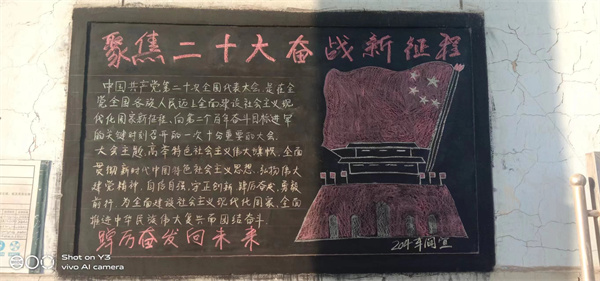 聚焦二十大奋战新征程
中国共产党第二十次全国代表大会,是在全
党全国各族人民迈上全面建设社会主义现
代化国家新征程、向第二个百年奋斗目标进军
的关键时刻召开的一次十分重要的大会。
大会主题:高举特色社会主义伟大旗帜,全面
贯彻新时代中国特色社会主义思想,弘扬伟大
建党精神,自信自强、守正创新,踔厉奋发、勇毅
前行,为全面建设社会主义现代化国家、全面
推进中华民族伟大复兴而团结奋斗。
踔厉奋发向未来
宣
Shot on Y3
vivo AI camera